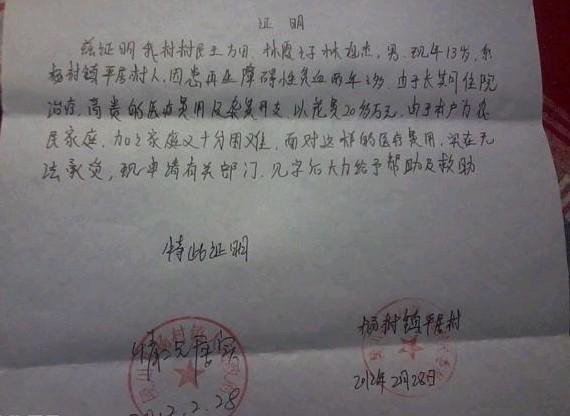 证明
兹证明我村村民王为田、林霞之子林冠杰,男,现年13岁,系
杨村镇平居村人,因患再生障碍性贫血两年多,由于长期住院
治疗,高贵的医疗费用及杂费开支,以花费20多万元,由于本户为农
民家庭,加之家庭又十分困难,面对这样的医疗费用,实在无
法承负,现申请有关部门,见字后大力给予帮助及救助
特此证明
情况属实
2012.2.28
杨村镇平居村
2012年2月28日